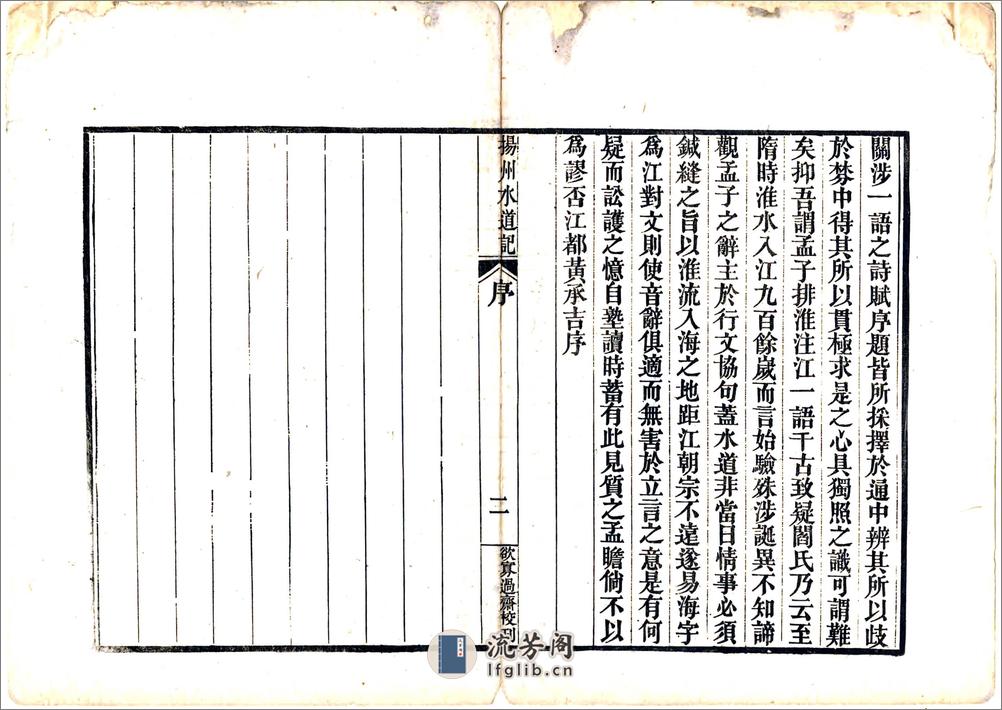 關涉一語之詩賦序題皆所採擇於通中辨其所以歧
於棼中得其所以貫極求是之心具獨照之識可謂難
矣抑吾謂孟子排淮注江一語千古致疑閻氏乃云至
隋時淮水入江九百餘歲而言始驗殊涉誕異不知諦
觀孟子之辭主於行文協句蓋水道非當日情事必須
鍼縫之旨以淮流入海之地距江朝宗不遠遂易海字
為江對文則使音辭俱適而無害於立言之意是有何
疑而訟護之憶自塾讀時蓄有此見質之孟瞻倘不以
為謬否江都黃承吉序
揚州水道記
序
二
欲寡過齋校刊
流芳阁
lfglib.cn